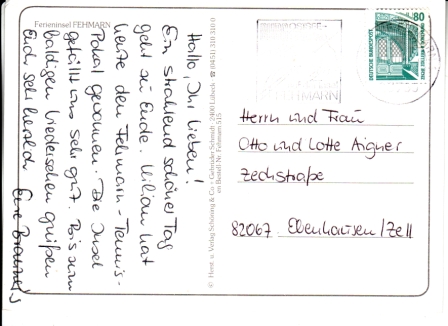 Ferieninsel FEHMARN
Hallo, Ihr Lieben!
Ein strahlend schöner Tag
geht zu Ende. Kilian hat
heute den Fehmarn-Tennis-
Pokal gewonnen. Die Insel
gefällt uns sehr gut. Bis zum
baldigen Wiedersehen grüßen
Euch sehr herzlich Eure
© Horst u. Verlag Schöning & Co · Gebrüder Schmidt · 2400 Lübeck ·
Bestell-Nr. Fehmarn 515
FEHMARN
80
DEUTSCHE BUNDESPOST
Herrn und Frau
Otto und Lotte Aigner
Zechstraße
82067 Ebenhausen/Zell